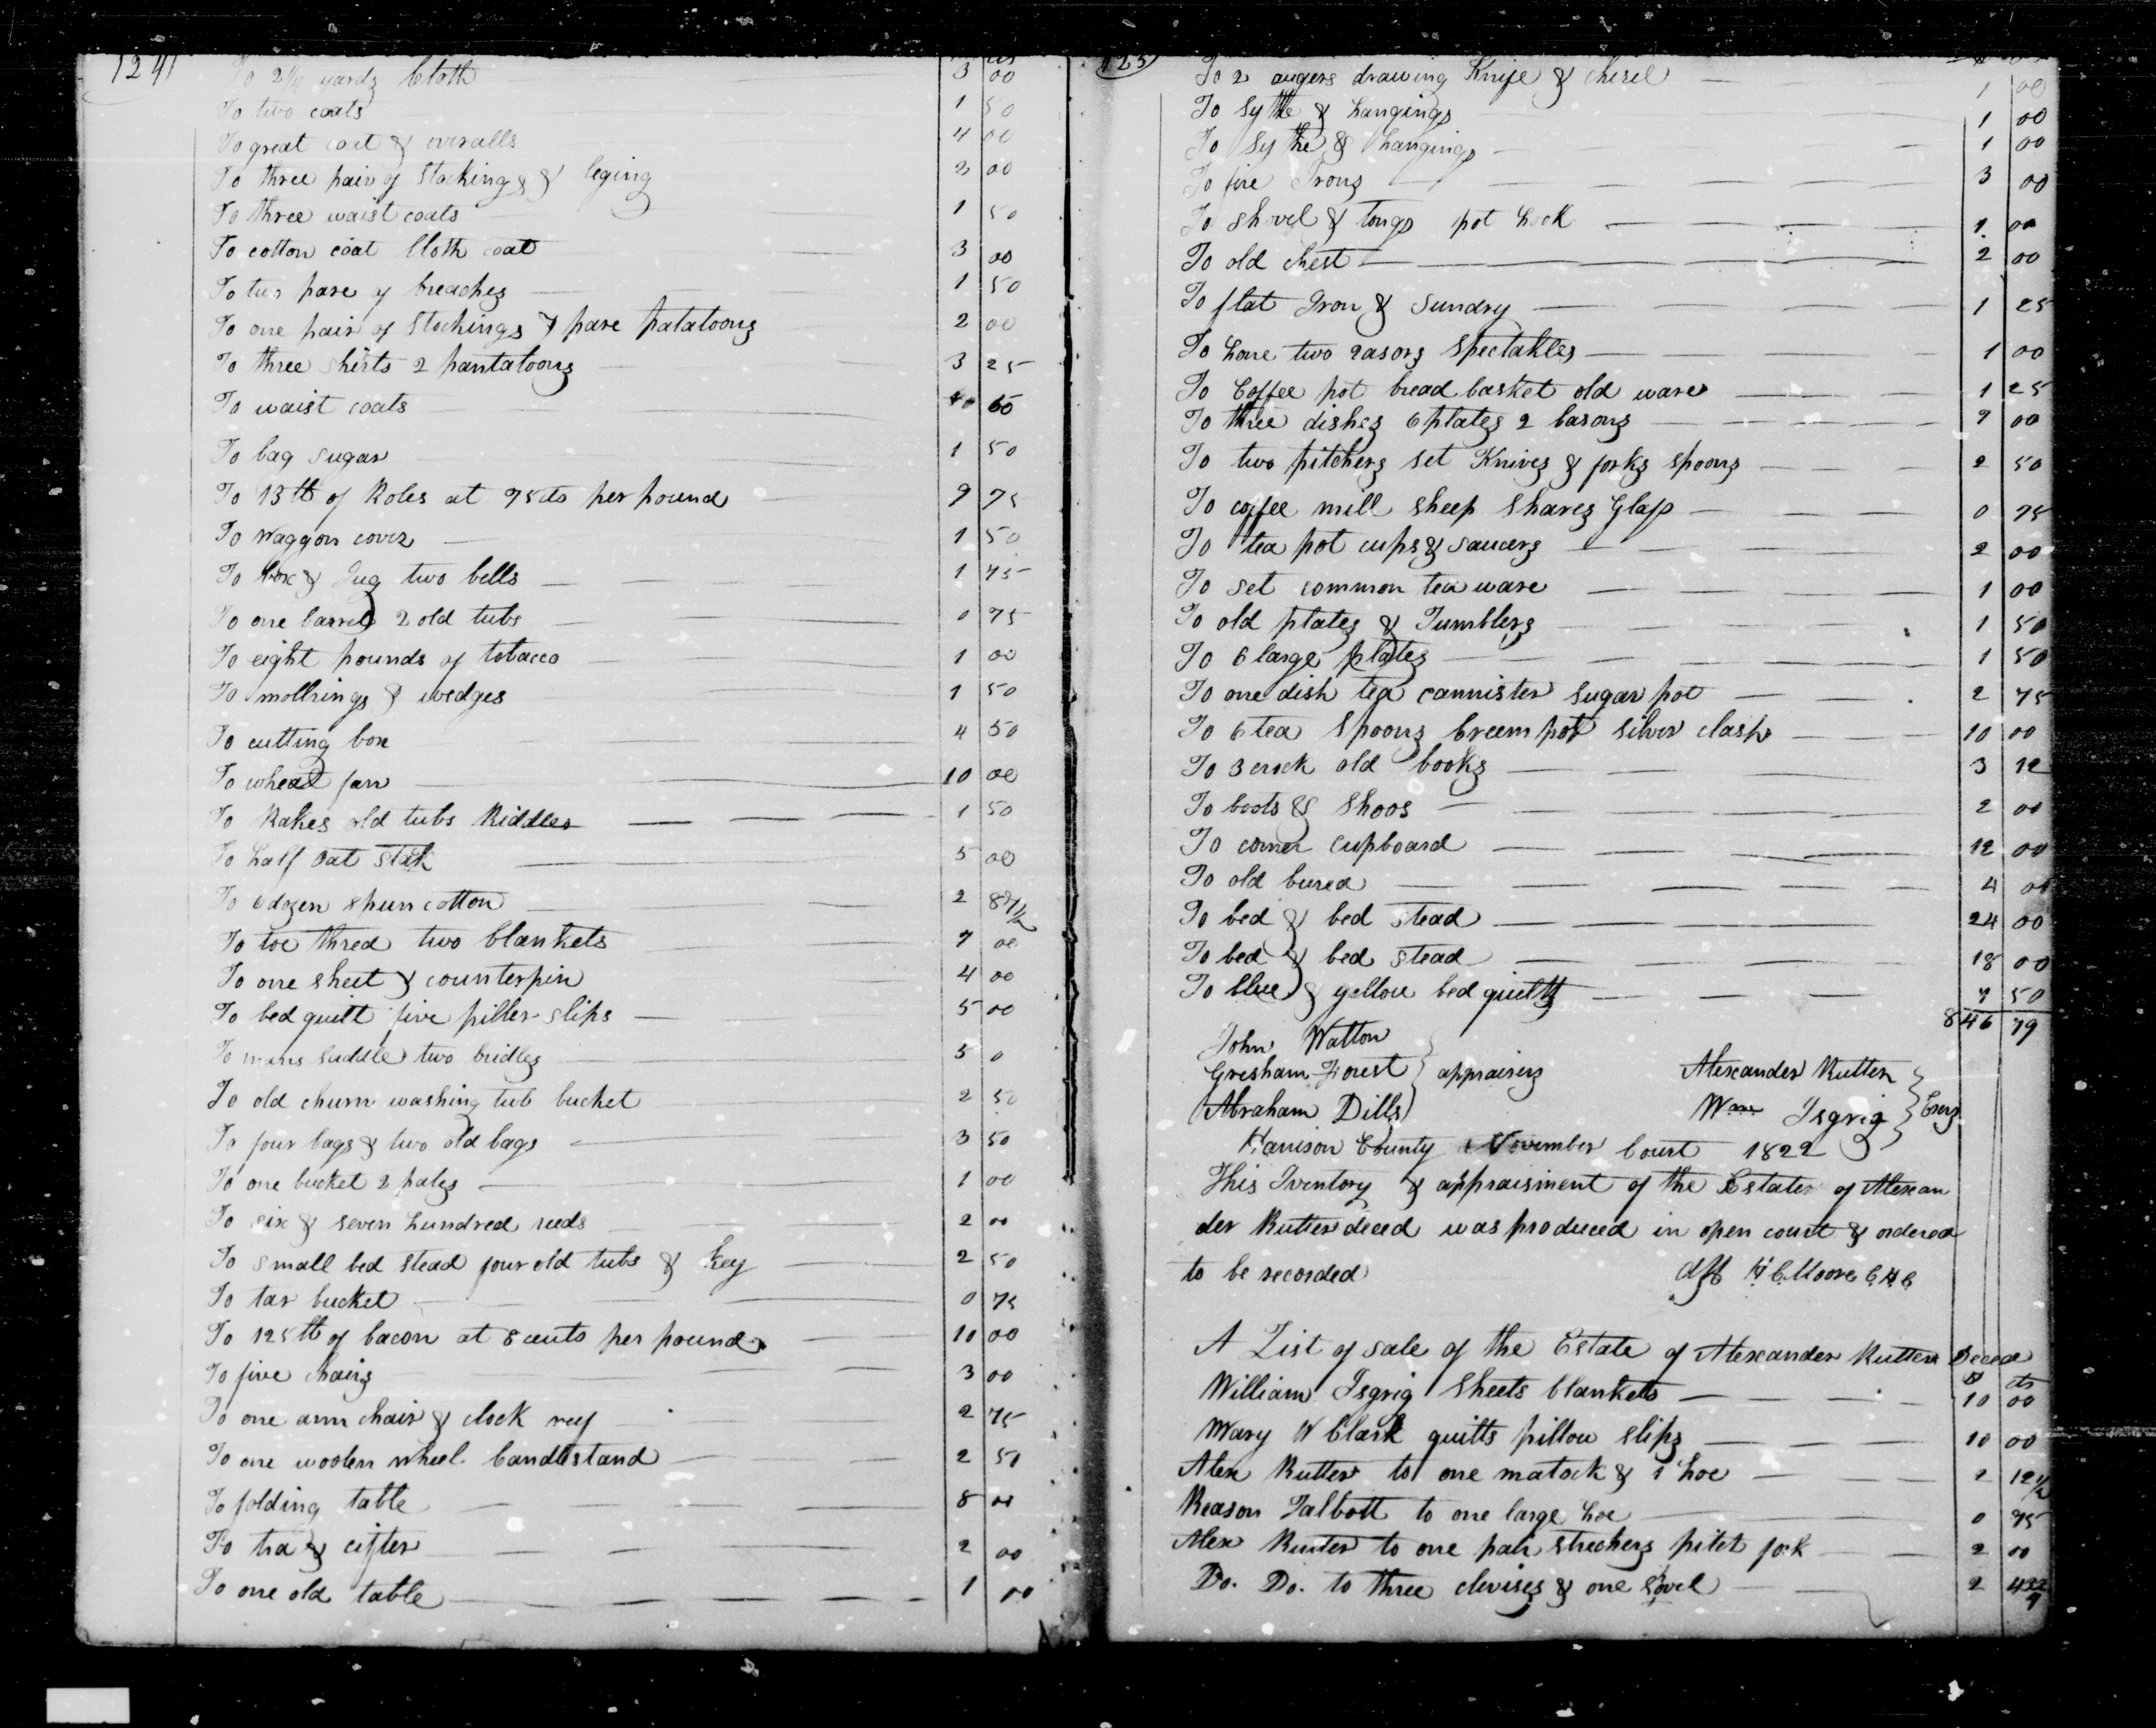 124
To 2 1/4 yards Cloth 3 00
To two coats 1 50
To great coat & overalls 4 00
To three pair of Stockings & leging 3 00
To three waist coats 1 50
To cotton coat Cloth coat 3 00
To two pare of breaches 1 50
To one pair of Stockings & pare patatoons 2 00
To three shirts 2 pantaloons 3 25
To waist coats 60
To bag sugar 1 50
To 13 lb of Roles at 75 cts per pound 9 75
To Waggon cover 1 50
To box & Jug two bells 1 75
To one barrel 2 old tubs 0 75
To eight pounds of tobacco 1 00
To mollrings & wedges 1 50
To cutting box 4 50
To wheat fan 10 00
To Rakes old tubs Riddles 1 50
To half oat stak 5 00
To 6 dozen spun cotton 2 87 1/2
To toe thred two blankets 7 00
To one sheet & counterpin 4 00
To bed quilt five piller slips 5 00
To mans saddle two bridles 5 0
To old churn washing tub bucket 2 50
To four bags & two old bags 3 50
To one bucket 2 pales 1 00
To six & seven hundred reeds 2 00
To small bed stead four old tubs & key 2 50
To tar bucket 0 75
To 125 lb of bacon at 8 cents per pound 10 00
To five chairs 3 00
To one arm chair & clock reef 2 75
To one woolen wheel Candlestand 2 50
To folding table 8 00
To tra & cifter 2 00
To one old table 1 00
125
To 2 augers drawing Knife & chisel 1 00
To Sythe & hangings 1 00
To Sythe & hangings 1 00
To fire Irons 3 00
To shovel & tongs pot hook 1 00
To old chest 2 00
To flat Iron & Sundry 1 25
To hone two rasors Spectakles 1 00
To Coffee pot bread basket old ware 1 25
To three dishes 6 plates 2 basons 7 00
To two pitchers set Knives & forks spoons 2 50
To coffee mill sheep Shares Glass 0 75
To tea pot cups & saucers 2 00
To set common tea ware 1 00
To old plates & Tumblers 1 50
To 6 large plates 1 50
To one dish tea cannister sugar pot 2 75
To 6 tea Spoons Creem pot silver clasp 10 00
To 3 crock old books 3 12
To boots & Shoos 2 00
To corner cupboard 12 00
To old burea 4 00
To bed & bed stead 24 00
To bed & bed stead 18 00
To blue & yellow bed quilts 7 50
846 79
John Watton
Gresham Forest } appraisers Alexander Rutter
Abraham Dills Wm Isgrig } Exors
Harrison County November Court 1822
This Iventory & appraisment of the Estate of Alexan
der Rutter deced was produced in open court & ordered
to be recorded Att H C Moore C H C
A List of sale of the Estate of Alexander Rutter Deced
D cts
William Isgrig Sheets blankets 10 00
Mary W Clark quilts pillow slips 10 00
Alex Rutter to one matock & 1 hoe 2 12 1/2
Reason Talbott to one large hoe 0 75
Alex Rutter to one pair strechers pitch fork 2 00
Do. Do. to three clevises & one sovel 2